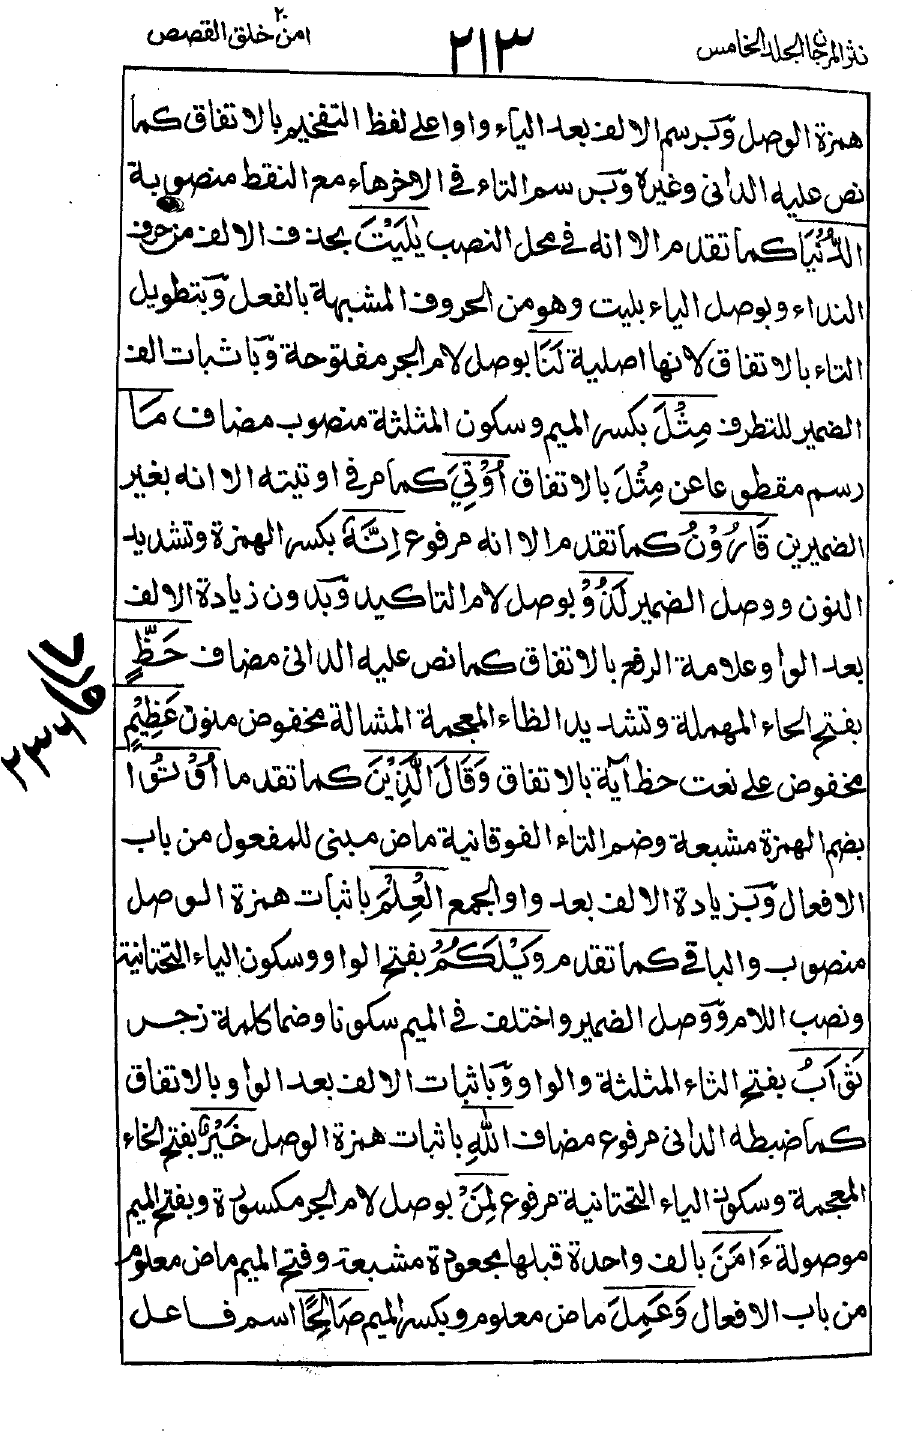 نثر المرجان الجلد الخامس
٢١٣
امن خلق ٢٠ القصص
همزة الوصل وبرسم الالف بعد الياء واوا على لفظ التفخيم بالاتفاق كما
نص عليه الدانى وغيره وبرسم التاء فى الاخر هاء مع النقط منصوبة
الدُّنْيَا كما تقدم الا انه فى محل النصب يٰلَيْتَ بحذف الالف من حرف
النداء وبوصل الياء بليت وهو من الحروف المشبهة بالفعل وبتطويل
التاء بالاتفاق لانها اصلية لَنَا بوصل لام الجر مفتوحة وباثبات الف
الضمير للتطرف مِثْلَ بكسر الميم وسكون المثلثة منصوب مضاف مَا
رسم مقطوعا عن مِثْلَ بالاتفاق اُوْتِيَ كما مر فى اوتيته الا انه بغير
الضميرين قَارُوْنُ كما تقدم الا انه مرفوع اِنَّهٗ بكسر الهمزة وتشديد
النون ووصل الضمير لَذُوْ بوصل لام التاكيد وبدون زيادة الالف
بعد الواو علامة الرفع بالاتفاق كما نص عليه الدانى مضاف حَظٍّ
بفتح الحاء المهملة وتشديد الظاء المعجمة المشالة مخفوض منون عَظِيْمٍ
مخفوض على نعت حظ آية بالاتفاق وَقَالَ الَّذِيْنَ كما تقدما اُوْتُوا
بضم الهمزة مشبعة وضم التاء الفوقانية ماض مبنى للمفعول من باب
الافعال وبزيادة الالف بعد واو الجمع الْعِلْمَ باثبات همزة الوصل
منصوب والباقى كما تقدم وَيْلَكُمْ بفتح الواو وسكون الياء التحتانية
ونصب اللام ووصل الضمير واختلف فى الميم سكونا وضما كلمة زجر
ثَوَابُ بفتح الثاء المثلثة والواو وباثبات الالف بعد الواو بالاتفاق
كما ضبطه الدانى مرفوع مضاف اللّٰهِ باثبات همزة الوصل خَيْرٌ بفتح الخاء
المعجمة وسكون الياء التحتانية مرفوع لِمَنْ بوصل لام الجر مكسورة وبفتح الميم
موصولة ءَامَنَ بالف واحدة قبلها مجعودة مشبعة وفتح الميم ماض معلوم
من باب الافعال وَعَمِلَ ماض معلوم وبكسر الميم صَالِحًا اسم فاعل